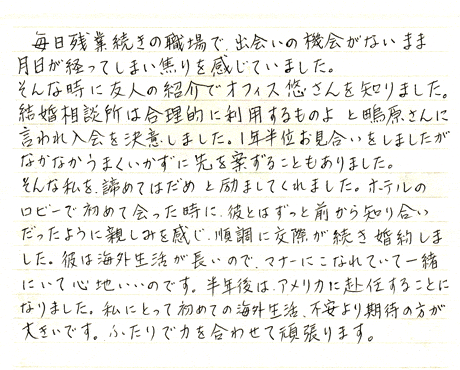 毎日残業続きの職場で、出会いの機会がないまま
月日が経ってしまい焦りを感じていました。
そんな時に友人の紹介でオフィス悠さんを知りました。
結婚相談所は合理的に利用するものよ と鴫原さんに
言われ入会を決意しました。1年半位お見合いをしましたが
なかなかうまくいかずに先を案ずることもありました。
そんな私を、諦めてはだめ と励ましてくれました。ホテルの
ロビーで初めて会った時に、彼とはずっと前から知り合い
だったように親しみを感じ、順調に交際が続き婚約しま
した。彼は海外生活が長いので、マナーにこなれていて一緒
にいて心地いいのです。半年後は、アメリカに赴任することに
なりました。私にとって初めての海外生活、不安より期待の方が
大きいです。ふたりで力を合わせて頑張ります。